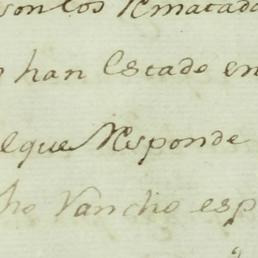 son los Rematad
han Estado en
que Responde
ho Rancho esp